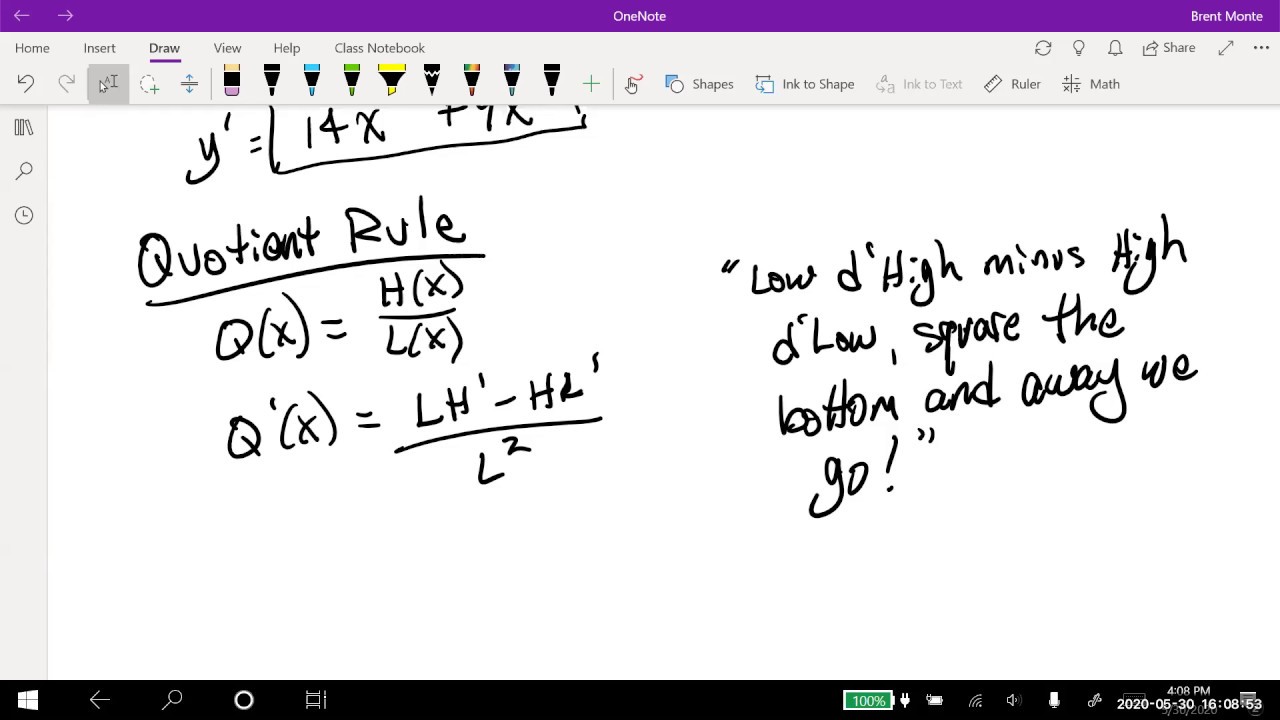 OneNote
Brent Monte
Home Insert Draw View Help Class Notebook
Share
Shapes Ink to Shape Ink to Text Ruler Math
y' =
Quotient Rule
Q(x) = H(x)/L(x)
Q'(x) = LH' - HL'/L²
"Low d'High minus High
d'Low, square the
bottom and away we
go!"
100%
4:08 PM
2020-05-30 16:08:53